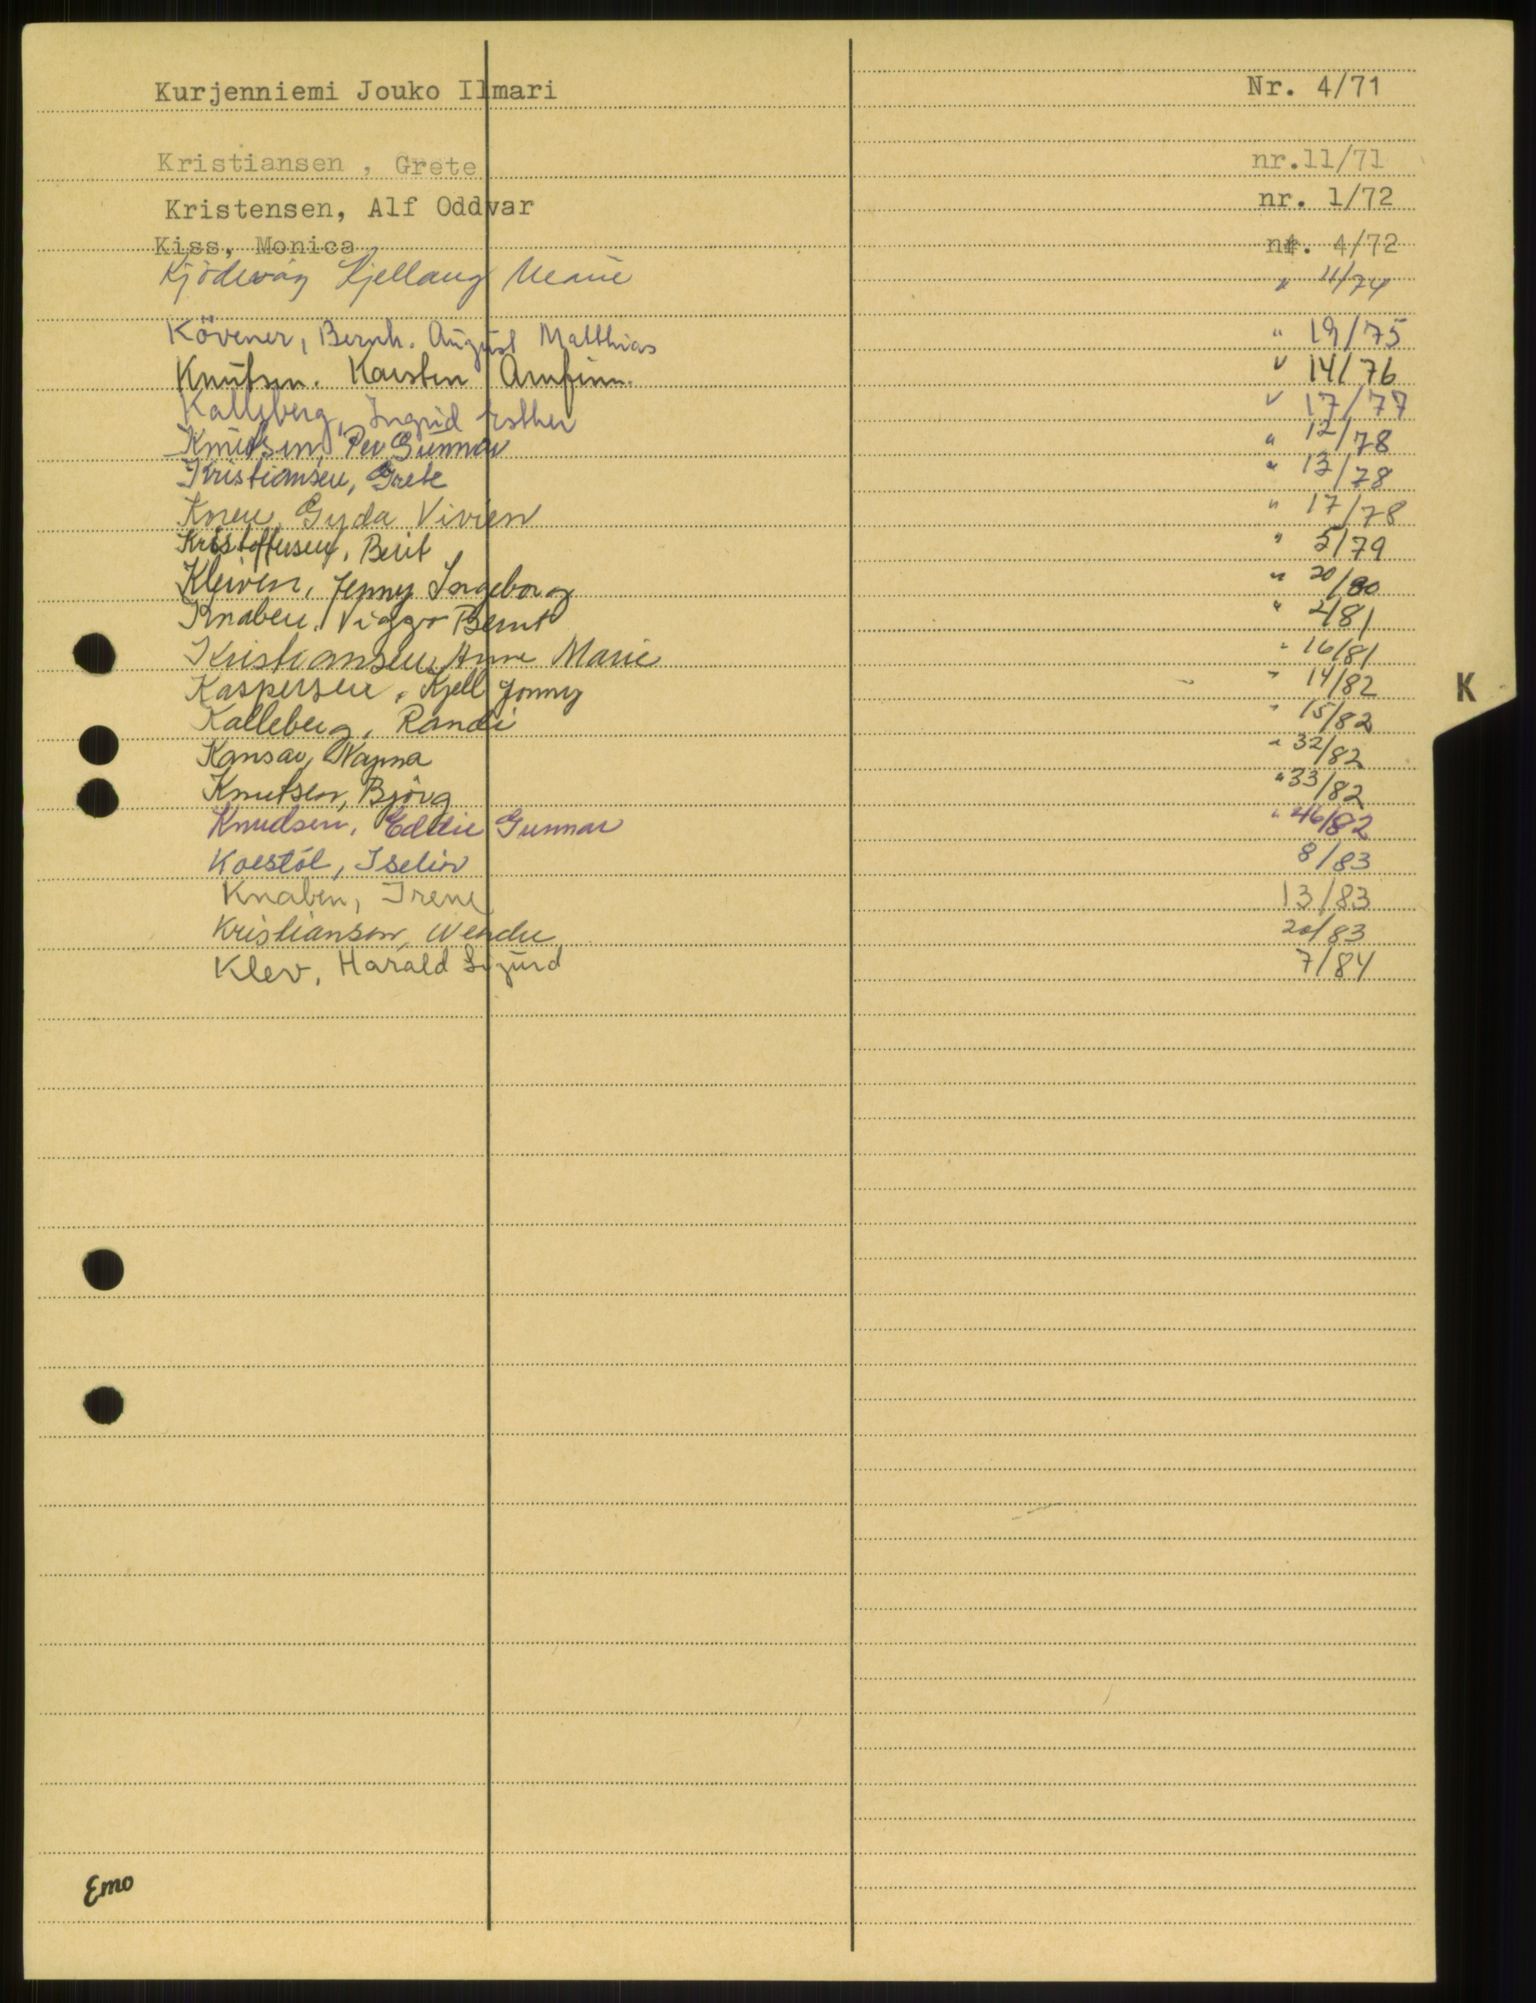 Kurjenniemi Jouko Ilmari Nr. 4/71
Kristiansen , Grete nr.11/71
Kristensen, Alf Oddvar nr. 1/72
Kiss, Monica nr. 4/72
Kjödevåg Kjellaug Marie " 11/74
Kövener, Bernh. August Matthias " 19/75
Knutsen. Karsten Arnfinn. " 14/76
Kalleberg, Ingrid Esther " 17/77
Knudsen, Per Gunnar " 12/78
Kristiansen, Grete " 13/78
Knew, Gyda Vivien " 17/78
Kristoffersen, Berit " 5/79
Kleiven, Jenny Ingeborg " 20/80
Knaben, Viggo Bernt " 2/81
Kristiansen, Anne Marie " 16/81
Kaspersen, Kjell Jonny " 14/82
Kalleberg, Randi " 15/82
Kansav, Nayma " 32/82
Knutsen, Björg " 33/82
Knudsen, Eddie Gunnar " 46/82
Koestöl, Iselin 8/83
Knaben, Irene 13/83
Kristiansen, Wenche 20/83
Klev, Harald Sigurd 7/84
K
Emo